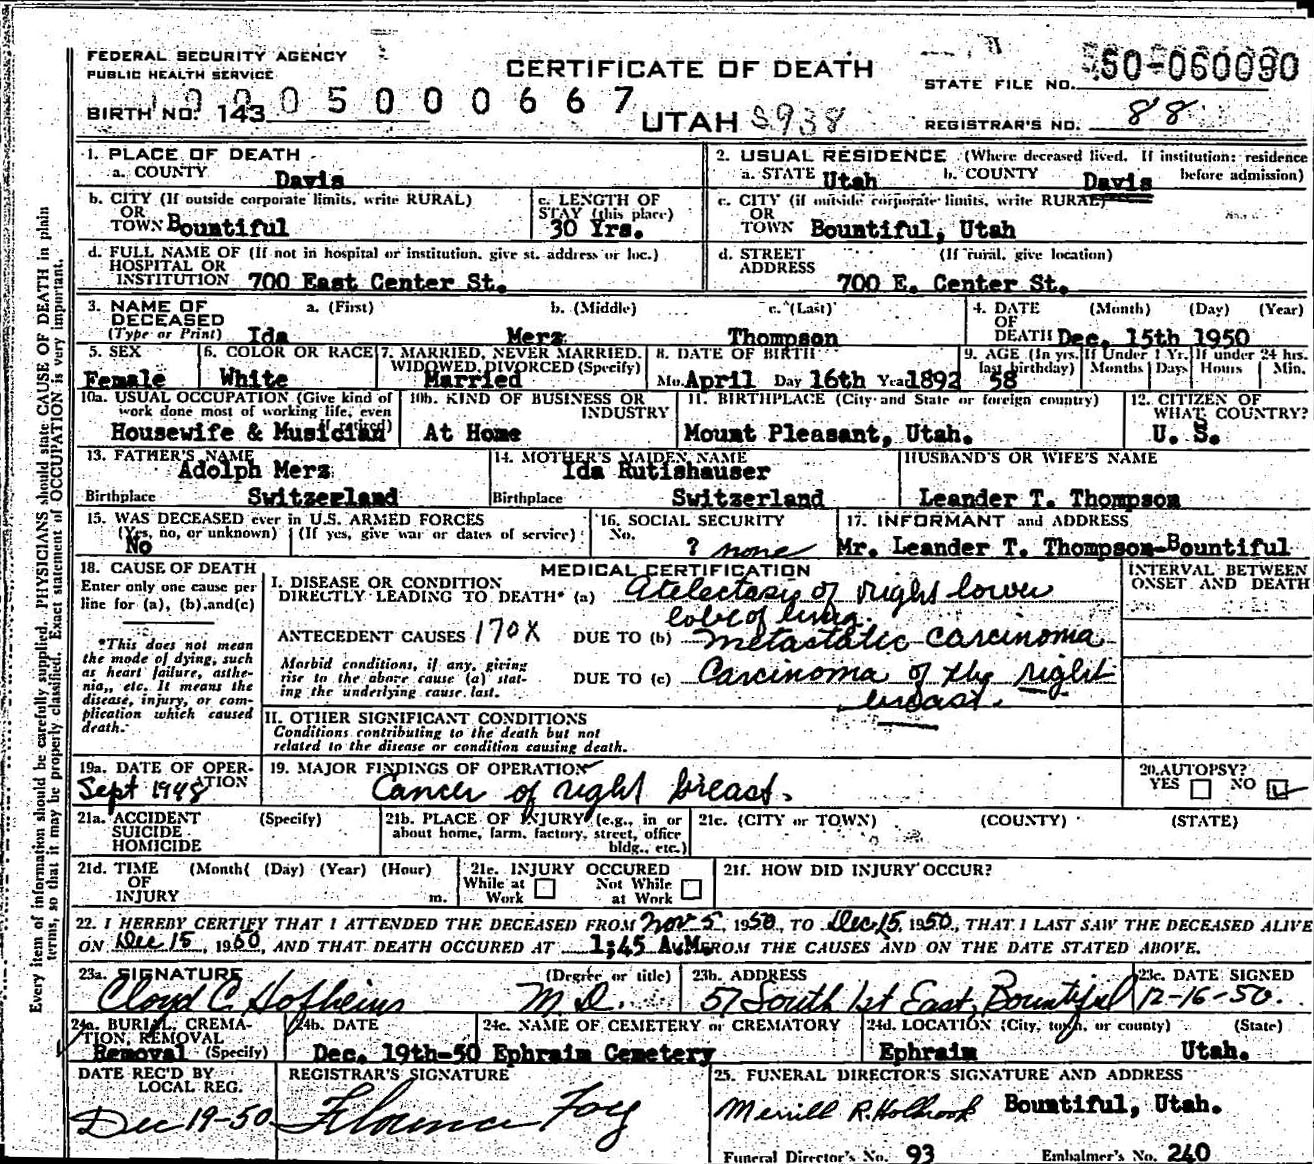 FEDERAL SECURITY AGENCY
PUBLIC HEALTH SERVICE
CERTIFICATE OF DEATH
STATE FILE NO. 50-060090
BIRTH NO. 143
0005000667
UTAH 8938
REGISTRAR'S NO. 88
1. PLACE OF DEATH
a. COUNTY Davis
2. USUAL RESIDENCE (Where deceased lived. If institution: residence before admission)
a. STATE Utah b. COUNTY Davis
b. CITY (If outside corporate limits, write RURAL) OR TOWN Bountiful
c. LENGTH OF STAY (this place) 30 Yrs.
c. CITY (if outside corporate limits, write RURAL) OR TOWN Bountiful, Utah
d. FULL NAME OF (If not in hospital or institution, give st. address or loc.) HOSPITAL OR INSTITUTION 700 East Center St.
d. STREET ADDRESS (If rural, give location) 700 E. Center St.
3. NAME OF DECEASED (Type or Print) a. (First) Ida b. (Middle) Merz c. (Last) Thompson
4. DATE OF DEATH (Month) (Day) (Year) Dec. 15th 1950
5. SEX Female
6. COLOR OR RACE White
7. MARRIED, NEVER MARRIED, WIDOWED, DIVORCED (Specify) Married
8. DATE OF BIRTH Mo. April Day 16th Year 1892
9. AGE (In yrs. last birthday) 58 If Under 1 Yr. Months Days If under 24 hrs. Hours Min.
10a. USUAL OCCUPATION (Give kind of work done most of working life, even if retired) Housewife & Musician
10b. KIND OF BUSINESS OR INDUSTRY At Home
11. BIRTHPLACE (City and State or foreign country) Mount Pleasant, Utah.
12. CITIZEN OF WHAT COUNTRY? U. S.
13. FATHER'S NAME Adolph Merz
Birthplace Switzerland
14. MOTHER'S MAIDEN NAME Ida Rutishauser
Birthplace Switzerland
HUSBAND'S OR WIFE'S NAME
Leander T. Thompson
15. WAS DECEASED ever in U.S. ARMED FORCES (Yes, no, or unknown) (If yes, give war or dates of service) No
16. SOCIAL SECURITY No. ? none
17. INFORMANT and ADDRESS
Mr. Leander T. Thompson-Bountiful
18. CAUSE OF DEATH
Enter only one cause per line for (a), (b), and (c)
*This does not mean the mode of dying, such as heart failure, asthenia, etc. It means the disease, injury, or complication which caused death.
MEDICAL CERTIFICATION
INTERVAL BETWEEN ONSET AND DEATH
I. DISEASE OR CONDITION DIRECTLY LEADING TO DEATH* (a) Atelectasis of right lower lobe of lung
ANTECEDENT CAUSES 170X DUE TO (b) Metastatic carcinoma
Morbid conditions, if any, giving rise to the above cause (a) stating the underlying cause last.
DUE TO (c) Carcinoma of the right breast.
II. OTHER SIGNIFICANT CONDITIONS
Conditions contributing to the death but not related to the disease or condition causing death.
19a. DATE OF OPERATION Sept 1948
19. MAJOR FINDINGS OF OPERATION
Cancer of right breast.
20. AUTOPSY?
YES NO
21a. ACCIDENT SUICIDE HOMICIDE (Specify)
21b. PLACE OF INJURY (e.g., in or about home, farm, factory, street, office bldg., etc.)
21c. (CITY or TOWN) (COUNTY) (STATE)
21d. TIME OF INJURY (Month) (Day) (Year) (Hour) m.
21e. INJURY OCCURED While at Work Not While at Work
21f. HOW DID INJURY OCCUR?
22. I HEREBY CERTIFY THAT I ATTENDED THE DECEASED FROM Nov 5, 1950, TO Dec 15, 1950, THAT I LAST SAW THE DECEASED ALIVE
ON Dec 15, 1950, AND THAT DEATH OCCURED AT 1;45 A.M. FROM THE CAUSES AND ON THE DATE STATED ABOVE.
23a. SIGNATURE (Degree or title)
Cloyd C. Hofheins M.D.
23b. ADDRESS
57 South 1st East, Bountiful
23c. DATE SIGNED
12-16-50.
24a. BURIAL, CREMATION, REMOVAL (Specify) Removal
24b. DATE Dec. 19th-50
24c. NAME OF CEMETERY or CREMATORY Ephraim Cemetery
24d. LOCATION (City, town, or county) (State) Ephraim Utah.
DATE REC'D BY LOCAL REG. Dec 19-50
REGISTRAR'S SIGNATURE Florence Foy
25. FUNERAL DIRECTOR'S SIGNATURE AND ADDRESS
Merrill R. Holbrook Bountiful, Utah.
Funeral Director's No. 93 Embalmer's No. 240
Every item of information should be carefully supplied. PHYSICIANS should state CAUSE OF DEATH in plain
terms, so that it may be properly classified. Exact statement of OCCUPATION is very important.